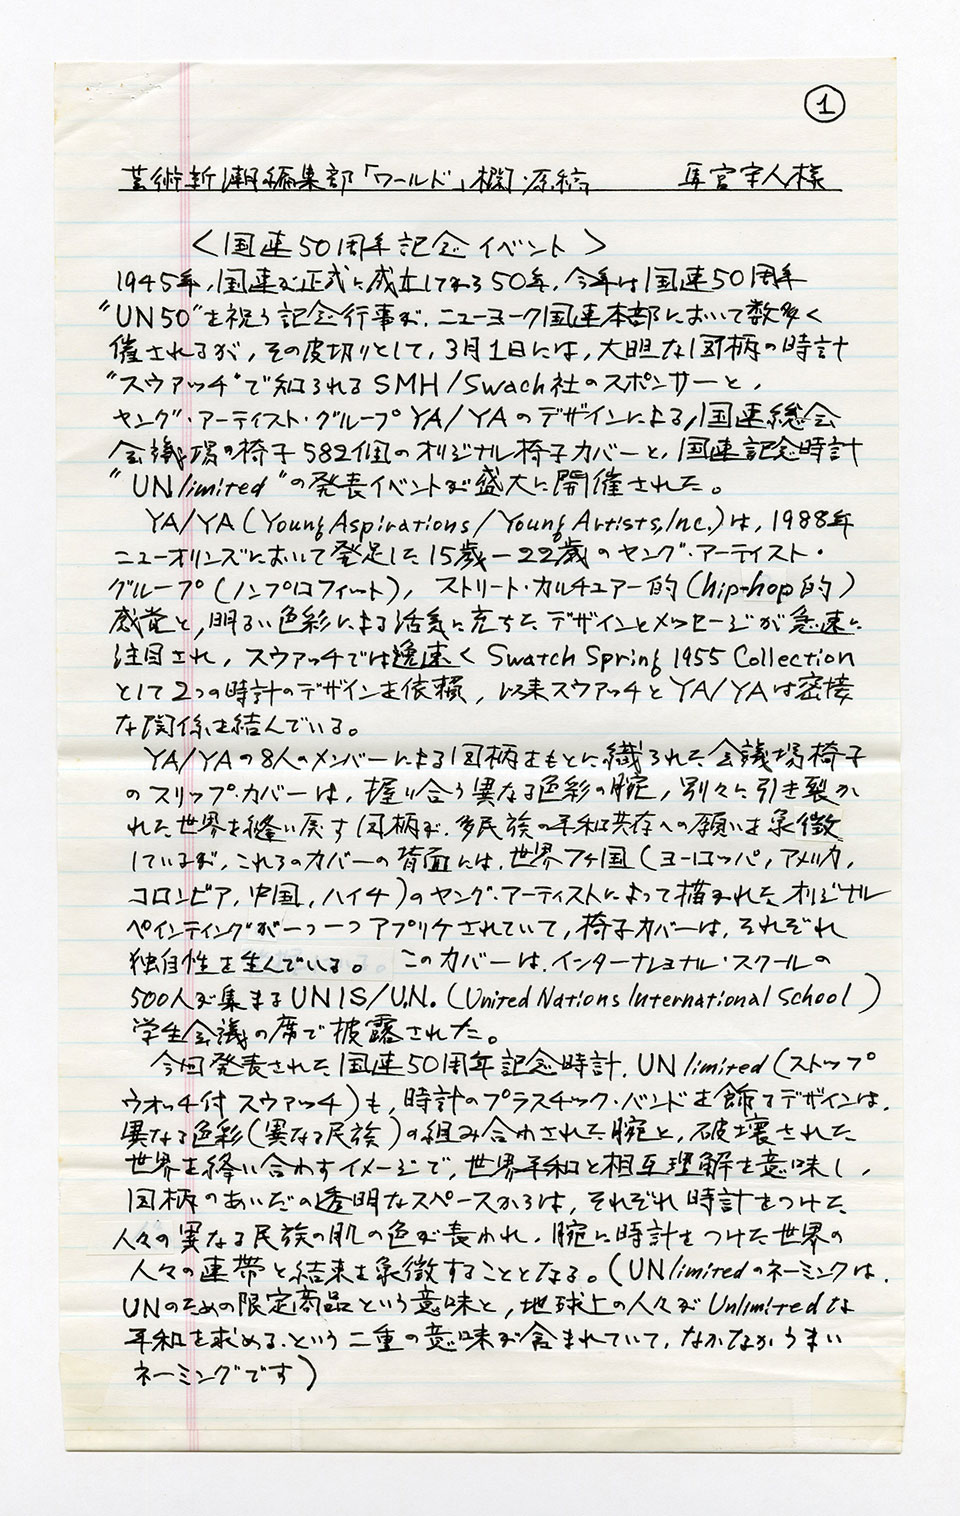 ①
芸術新潮編集部「ワールド」欄・原稿　馬宮宇人様
〈国連50周年記念イベント〉
1945年,国連が正式に成立してから50年,今年は国連50周年
"UN50"を祝う記念行事が,ニューヨーク国連本部において数多く
催されるが,その皮切りとして,3月1日には,大胆な図柄の時計
"スウァッチ"で知られるSMH/Swach社のスポンサーと,
ヤング・アーティスト・グループYA/YAのデザインによる,国連総会
会議場の椅子582個のオリジナル椅子カバーと,国連記念時計
"UNlimited"の発表イベントが盛大に開催された。
YA/YA(Young Aspirations/Young Artists,Inc.)は,1988年
ニューオリンズにおいて発足した15歳ー22歳のヤング・アーティスト・
グループ(ノンプロフィット),ストリート・カルチュアー的(hip-hop的)
感覚と,明るい色彩による活気に充ちたデザインとメッセージが急速に
注目され,スウァッチでは逸速く Swatch Spring 1955 Collection
として2つの時計のデザインを依頼,以来スウァッチとYA/YAは密接
な関係を結んでいる。
YA/YAの8人のメンバーによる図柄をもとに織られた会議場椅子
のスリップ・カバーは,握り合う異なる色彩の腕,別々に引き裂か
れた世界を縫い戻す図柄が,多民族の平和共存への願いを象徴
しているが,これらのカバーの背面には,世界7ヶ国(ヨーロッパ,アメリカ,
コロンビア,中国,ハイチ)のヤング・アーティストによって描かれたオリジナル
ペインティングが一つ一つアプリケされていて,椅子カバーは,それぞれ
独自性を生んでいる。このカバーは,インターナショナル・スクールの
500人が集まるUNIS/U.N.(United Nations International School)
学生会議の席で披露された。
今回発表された国連50周年記念時計,UNlimited(ストップ
ウオッチ付スウァッチ)も,時計のプラスチック・バンドを飾るデザインは,
異なる色彩(異なる民族)の組み合わされた腕と,破壊された
世界を縫い合わすイメージで,世界平和と相互理解を意味し,
図柄のあいだの透明なスペースからは,それぞれ時計をつけた
人々の異なる民族の肌の色が表われ,腕に時計をつけた世界の
人々の連帯と結束を象徴することとなる。(UNlimitedのネーミングは,
UNのための限定商品という意味と,地球上の人々がUnlimitedな
平和を求める,という二重の意味が含まれていて,なかなかうまい
ネーミングです)